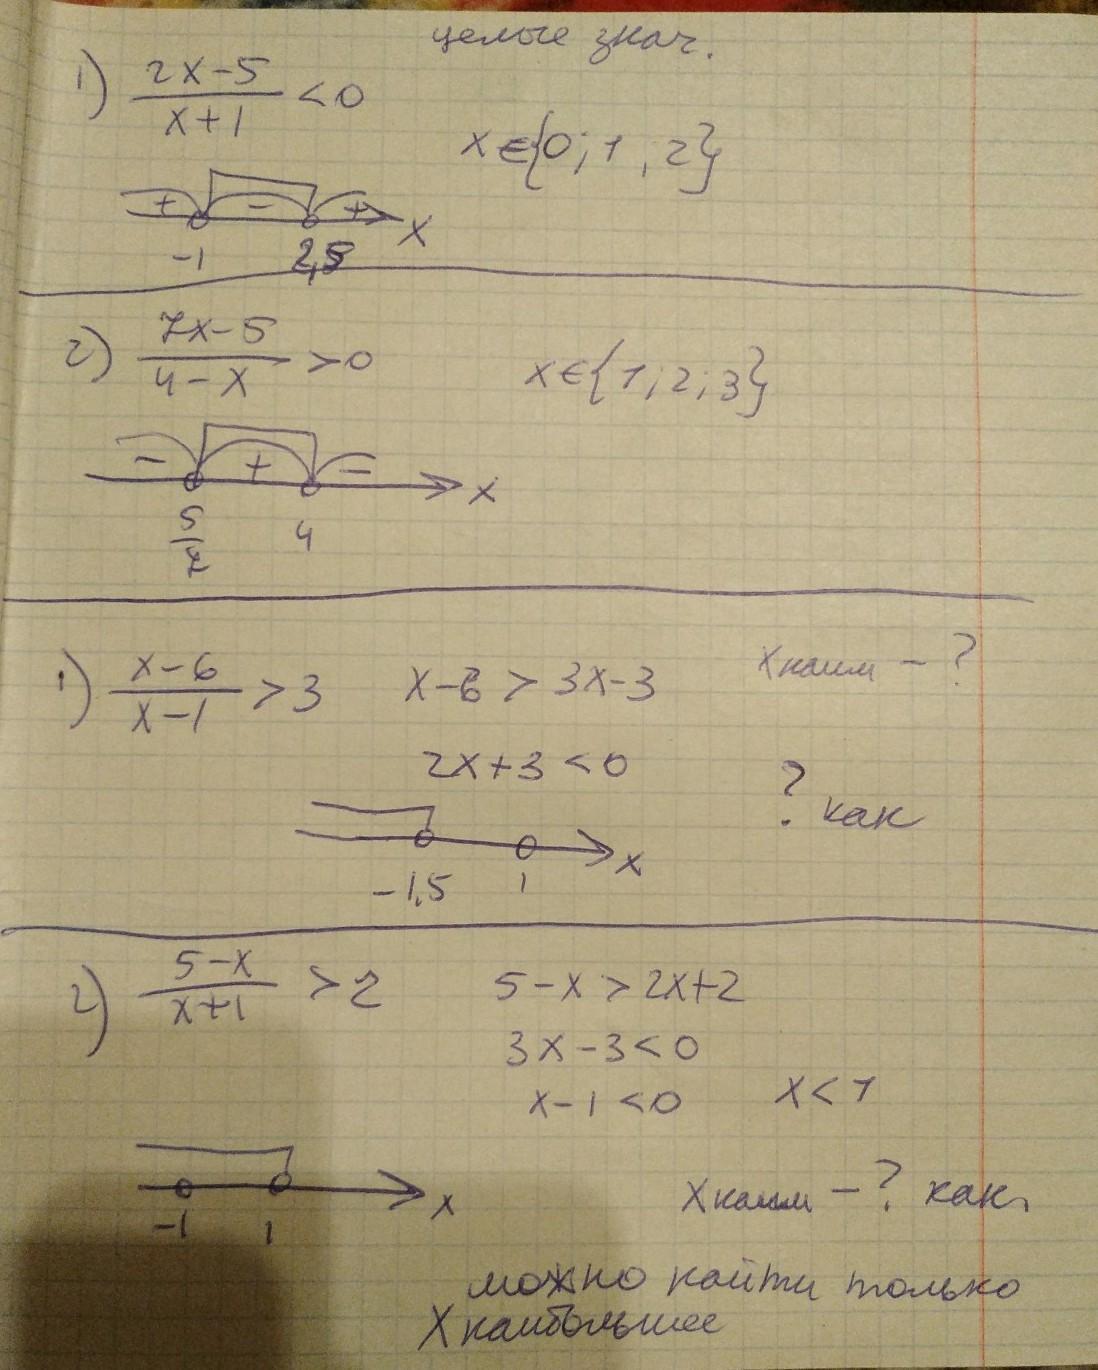 целые знач.
1) (2x-5)/(x+1) < 0
x ∈ {0; 1, 2}
+ - + x
-1 2,5
2) (7x-5)/(4-x) > 0
x ∈ {1; 2; 3}
- + - x
5/7 4
1) (x-6)/(x-1) > 3 x-6 > 3x-3 xнаим - ?
2x+3 < 0
? как
x
-1,5 1
2) (5-x)/(x+1) > 2 5-x > 2x+2
3x-3 < 0
x-1 < 0 x < 1
x
-1 1
xнаим - ? как
можно найти только
x наибольшее